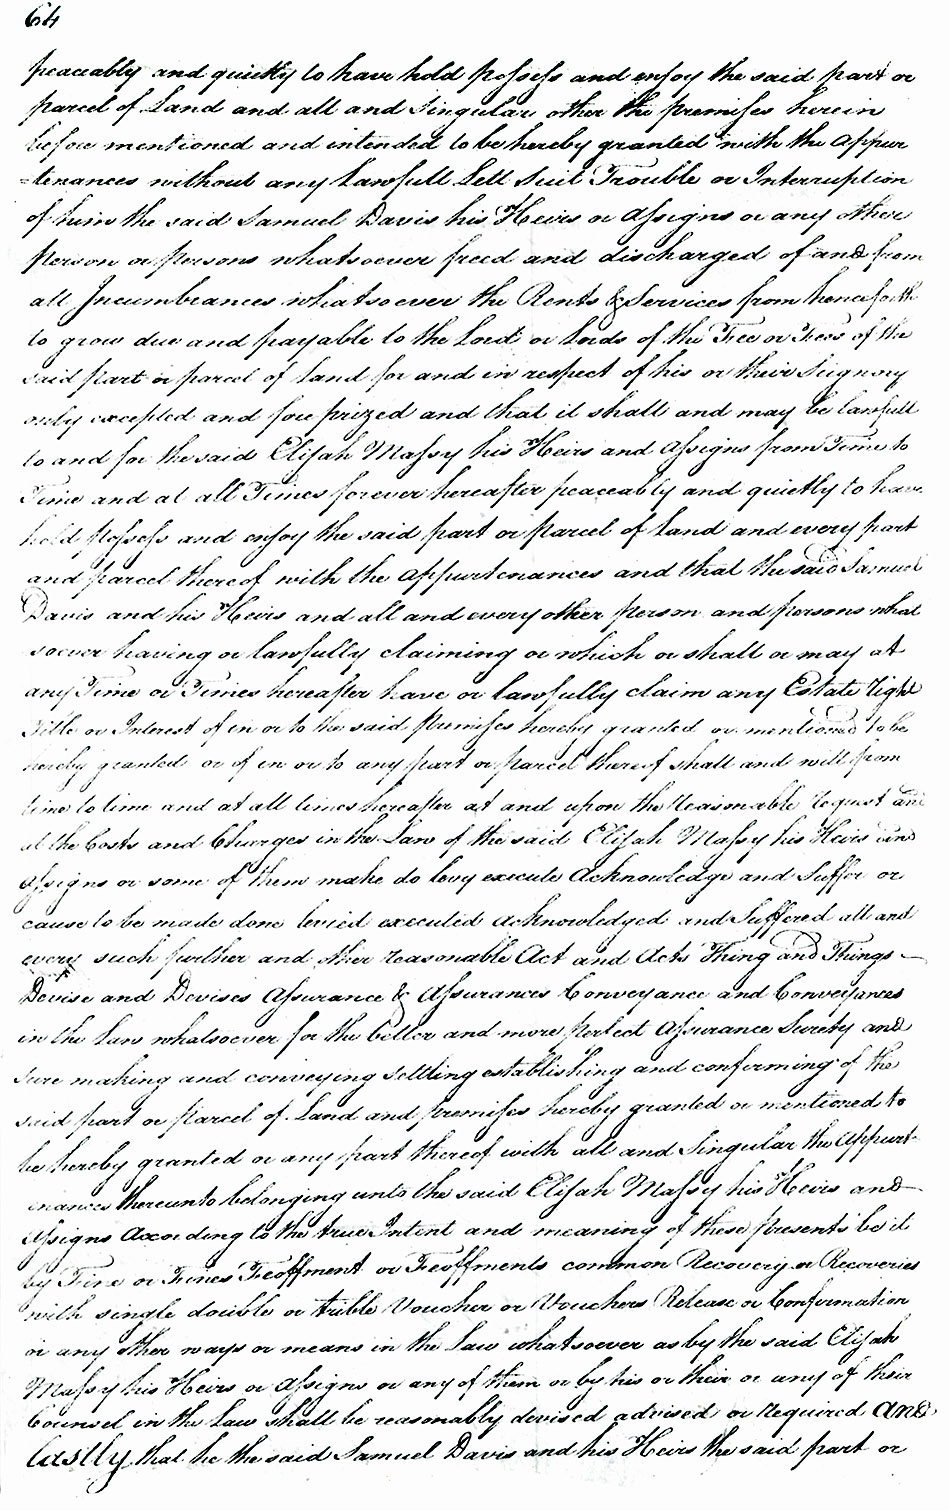 64
peaceably and quietly to have hold possess and enjoy the said part or
parcel of Land and all and Singular other the premises herein
before mentioned and intended to be hereby granted with the appur
=tenances without any Lawfull Lett Suit Trouble or Interruption
of him the said Samuel Davis his Heirs or assigns or any other
person or persons whatsoever freed and discharged of and from
all Incumbrances whatsoever the Rents & Services from henceforth
to grow due and payable to the Lord or Lords of the Fee or Fees of the
said part or parcel of land for and in respect of his or their Signory
only excepted and foreprized and that it shall and may be lawfull
to and for the said Elijah Massy his Heirs and assigns from Time to
Time and at all Times forever hereafter peaceably and quietly to have
hold possess and enjoy the said part or parcel of land and every part
and parcel thereof with the appurtenances and that the said Samuel
Davis and his Heirs and all and every other person and persons what
soever having or lawfully claiming or which or shall or may at
any Time or Times hereafter have or lawfully claim any Estate right
Title or Interest of in or to the said premises hereby granted or mentioned to be
hereby granted or of in or to any part or parcel thereof shall and will from
time to time and at all times hereafter at and upon the reasonable request and
at the Costs and Charges in the Law of the said Elijah Massy his Heirs and
assigns or some of them make do levy execute acknowledge and Suffer or
cause to be made done levied executed acknowledged and Suffered all and
every such further and other reasonable Act and Acts Thing and Things
Devise and Devises Assurance & Assurances Conveyance and Conveyances
in the Law whatsoever for the better and more perfect assurance Surety and
sure making and conveying settling establishing and conforming of the
said part or parcel of Land and premises hereby granted or mentioned to
be hereby granted or any part thereof with all and Singular the appurt
inances thereunto belonging unto the said Elijah Massy his Heirs and
assigns according to the true Intent and meaning of these presents be it
by Fine or Fines Feoffment or Feoffments common Recovery or Recoveries
with single double or trible Voucher or Vouchers Release or Conformation
or any other ways or means in the Law whatsoever as by the said Elijah
Massy his Heirs or assigns or any of them or by his or their or any of their
Counsel in the Law shall be reasonably devised advised or required and
lastly that he the said Samuel Davis and his Heirs the said part or